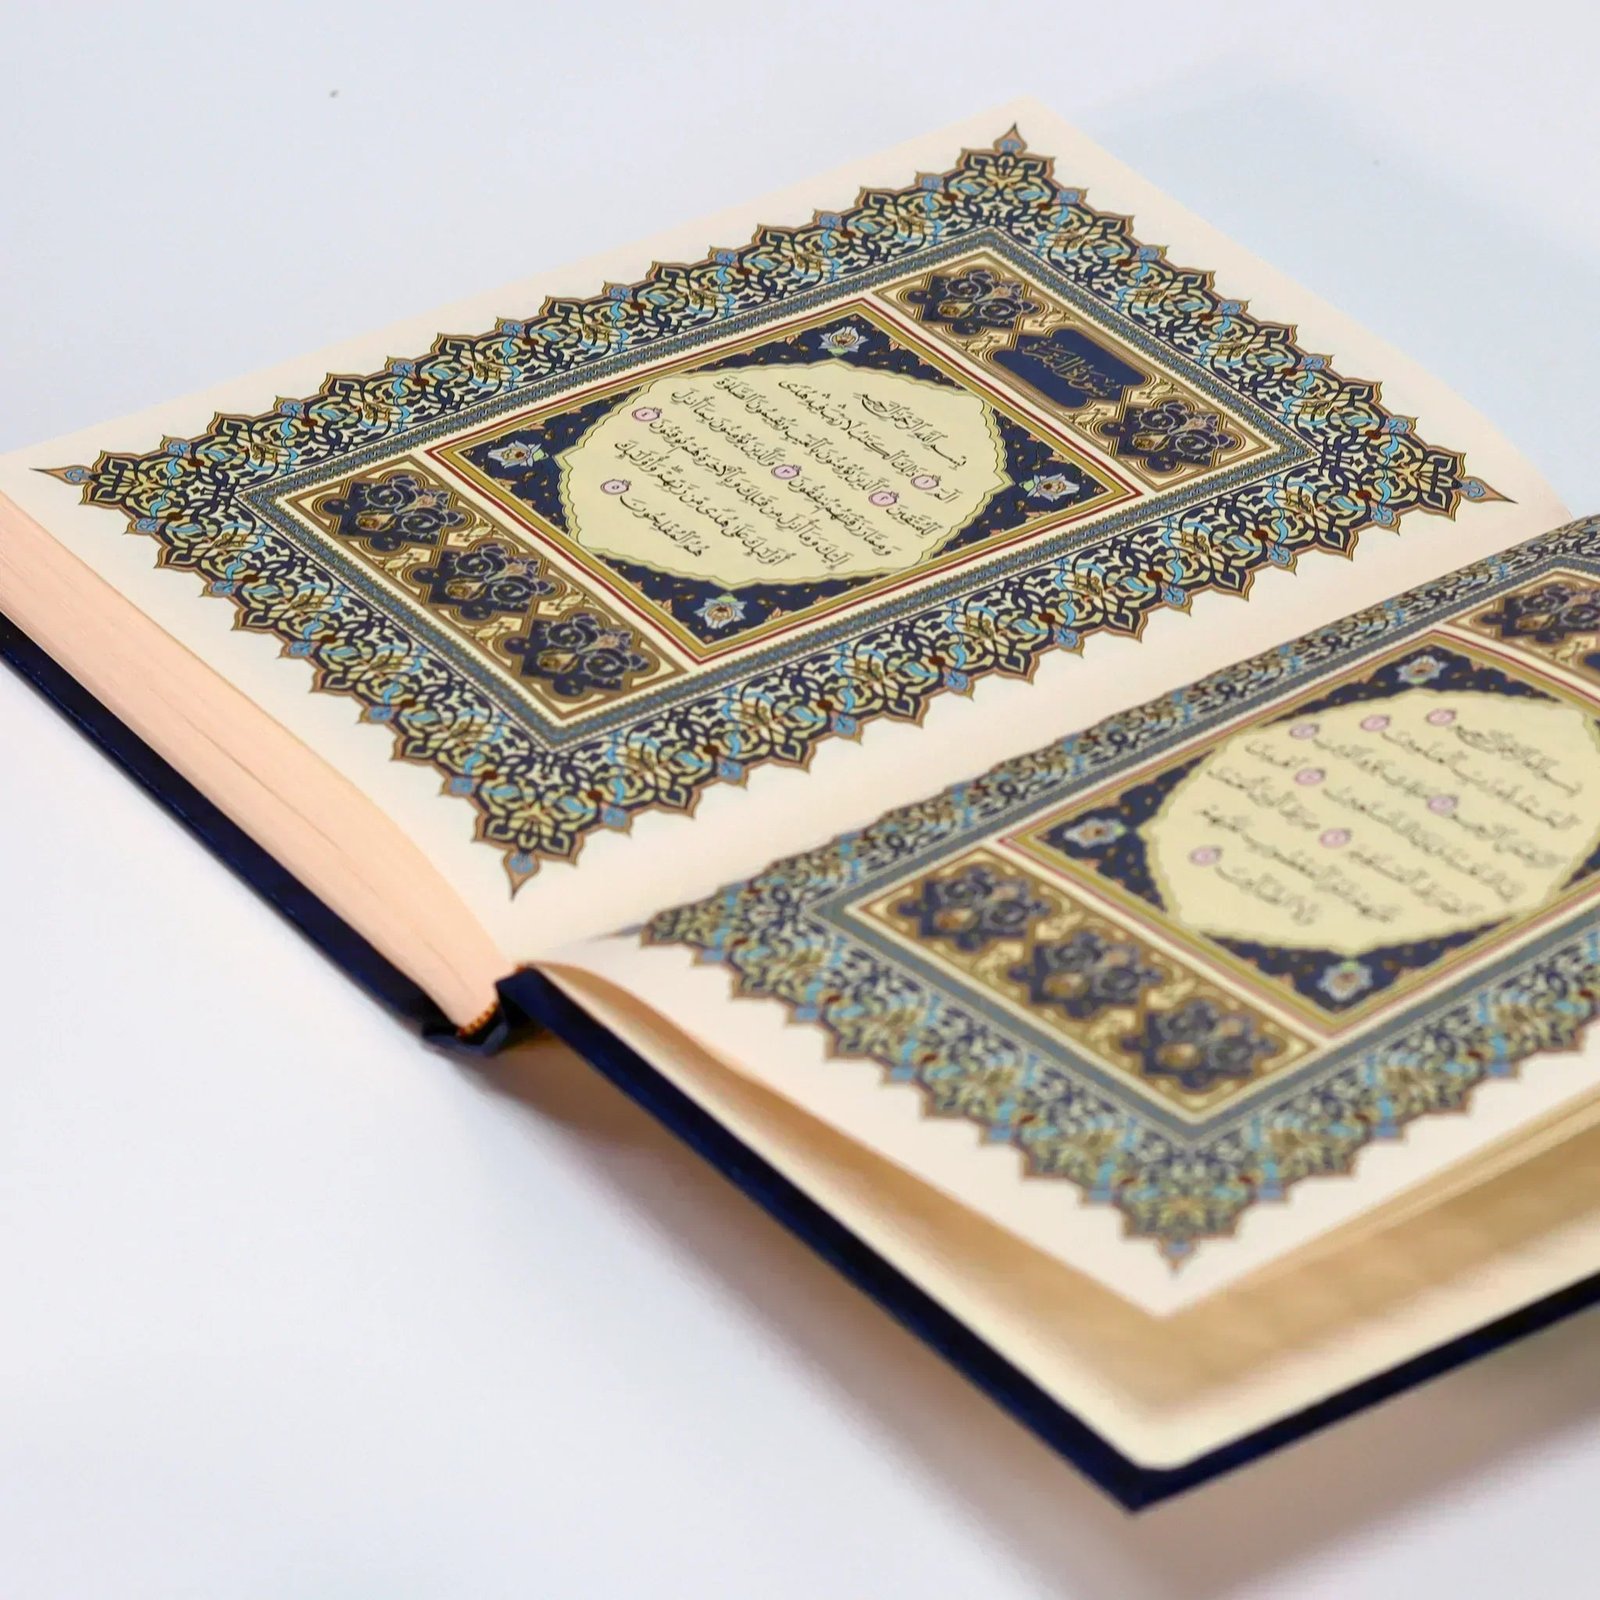 بِسْمِ اللَّهِ الرَّحْمَٰنِ الرَّحِيمِ ١
الْحَمْدُ لِلَّهِ رَبِّ الْعَالَمِينَ ٢
الرَّحْمَٰنِ الرَّحِيمِ ٣ مَالِكِ يَوْمِ الدِّينِ ٤
إِيَّاكَ نَعْبُدُ وَإِيَّاكَ نَسْتَعِينُ ٥ اهْدِنَا
الصِّرَاطَ الْمُسْتَقِيمَ ٦ صِرَاطَ الَّذِينَ أَنْعَمْتَ
عَلَيْهِمْ غَيْرِ الْمَغْضُوبِ عَلَيْهِمْ
وَلَا الضَّالِّينَ ٧
سُورَةُ الْبَقَرَةِ
بِسْمِ اللَّهِ الرَّحْمَٰنِ الرَّحِيمِ
الٓمٓ ١ ذَٰلِكَ الْكِتَابُ لَا رَيْبَ ۛ فِيهِ ۛ هُدًى
لِّلْمُتَّقِينَ ٢ الَّذِينَ يُؤْمِنُونَ بِالْغَيْبِ وَيُقِيمُونَ الصَّلَاةَ
وَمِمَّا رَزَقْنَاهُمْ يُنفِقُونَ ٣ وَالَّذِينَ يُؤْمِنُونَ بِمَا أُنزِلَ
إِلَيْكَ وَمَا أُنزِلَ مِن قَبْلِكَ وَبِالْآخِرَةِ هُمْ يُوقِنُونَ ٤
أُولَٰئِكَ عَلَىٰ هُدًى مِّن رَّبِّهِمْ ۖ وَأُولَٰئِكَ
هُمُ الْمُفْلِحُونَ ٥